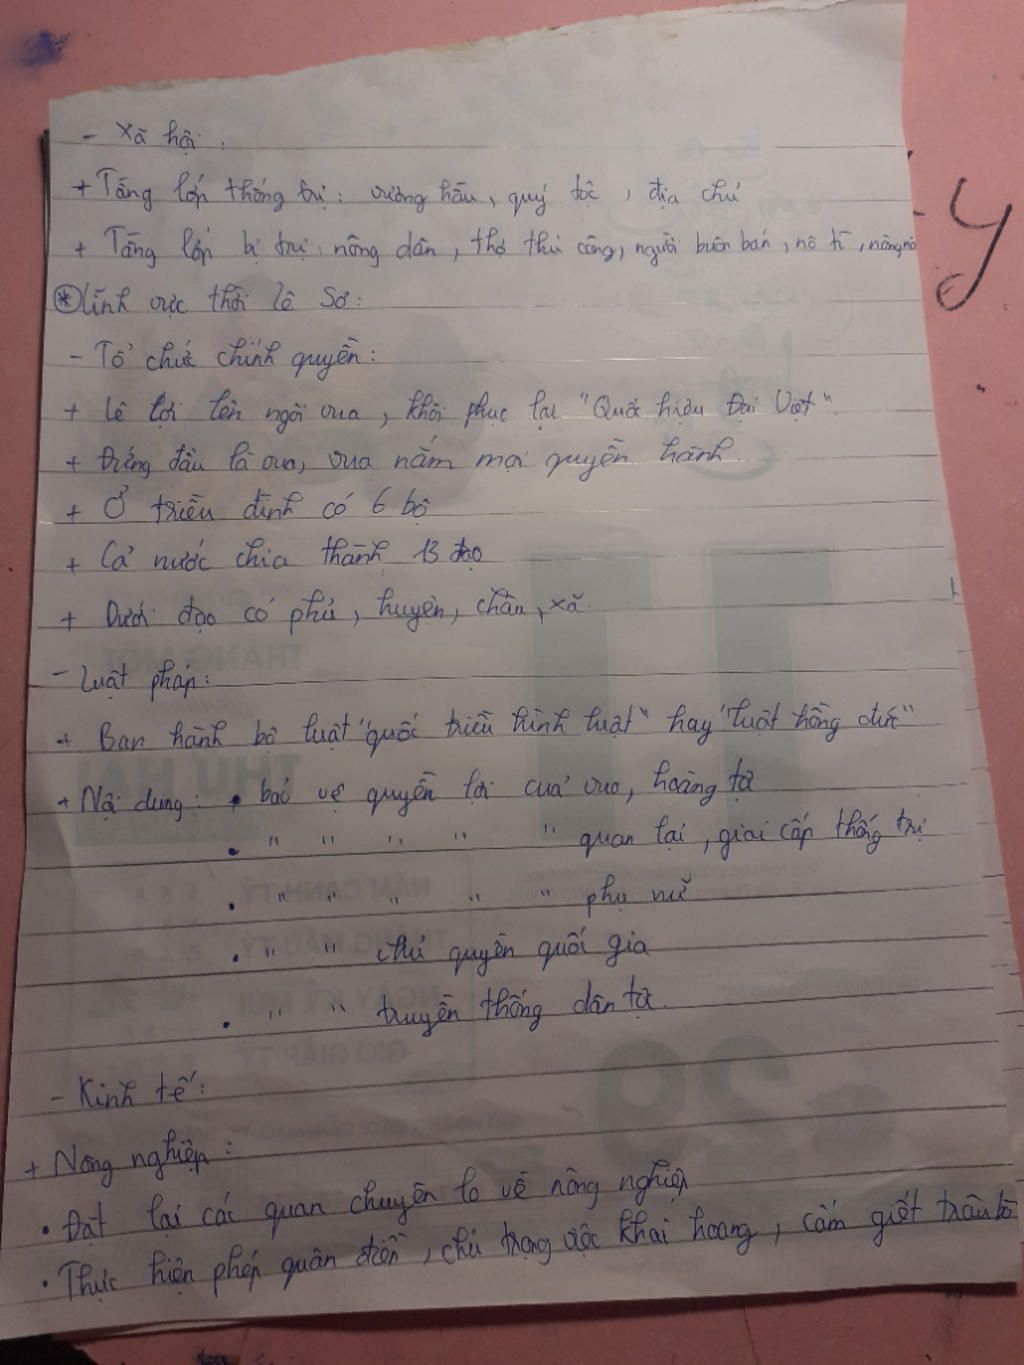 - Xã hội :
+ Tầng lớp thống trị : vương hầu, quý tộc, địa chủ
+ Tầng lớp bị trị : nông dân, thợ thủ công, người buôn bán, nô tì, nông nô
* Lĩnh vực thời Lê Sơ :
- Tổ chức chính quyền :
+ Lê Lợi lên ngôi vua, khôi phục lại "Quốc hiệu Đại Việt"
+ Đứng đầu là vua, vua nắm mọi quyền hành.
+ Ở triều đình có 6 bộ
+ Cả nước chia thành 13 đạo
+ Dưới đạo có phủ, huyện, châu, xã.
- Luật pháp :
+ Ban hành bộ luật "quốc triều hình luật" hay "luật hồng đức"
+ Nội dung : • bảo vệ quyền lợi của vua, hoàng tộc
• " " " " " quan lại, giai cấp thống trị
• " " " " " phụ nữ
• " " chủ quyền quốc gia
• " " truyền thống dân tộc.
- Kinh tế :
+ Nông nghiệp :
• Đặt lại các quan chuyên lo về nông nghiệp
• Thực hiện phép quân điền, chú trọng việc khai hoang, cấm giết trâu bò
y
THÁNG MỘT
THỨ HAI
NĂM CANH TÝ
THÁNG MẬU TÝ
NGÀY KỶ MÙI
GIỜ GIÁP TÝ
29